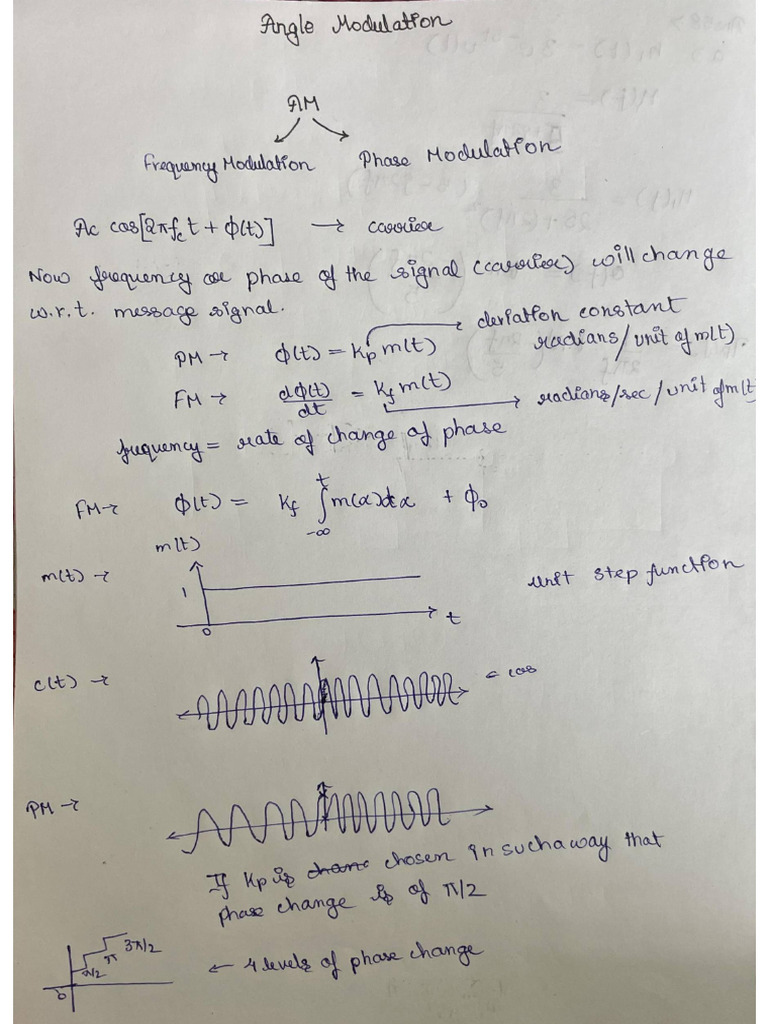 Angle Modulation
AM
Frequency Modulation Phase Modulation
Ac cos[2πfct + ϕ(t)] → carrier
Now frequency or phase of the signal (carrier) will change
w.r.t. message signal.
deviation constant
PM → ϕ(t) = Kp m(t) radians/unit of m(t).
FM → dϕ(t)/dt = Kf m(t) → radians/sec/unit of m(t
frequency = rate of change of phase
FM → ϕ(t) = Kf ∫_{-∞}^{t} m(α)dα + ϕ0
m(t)
m(t) → unit step function
1
t
0
c(t) → = cos
PM →
If Kp is chosen in such a way that
phase change is of π/2
3π/2
π ← 4 levels of phase change
π/2
0